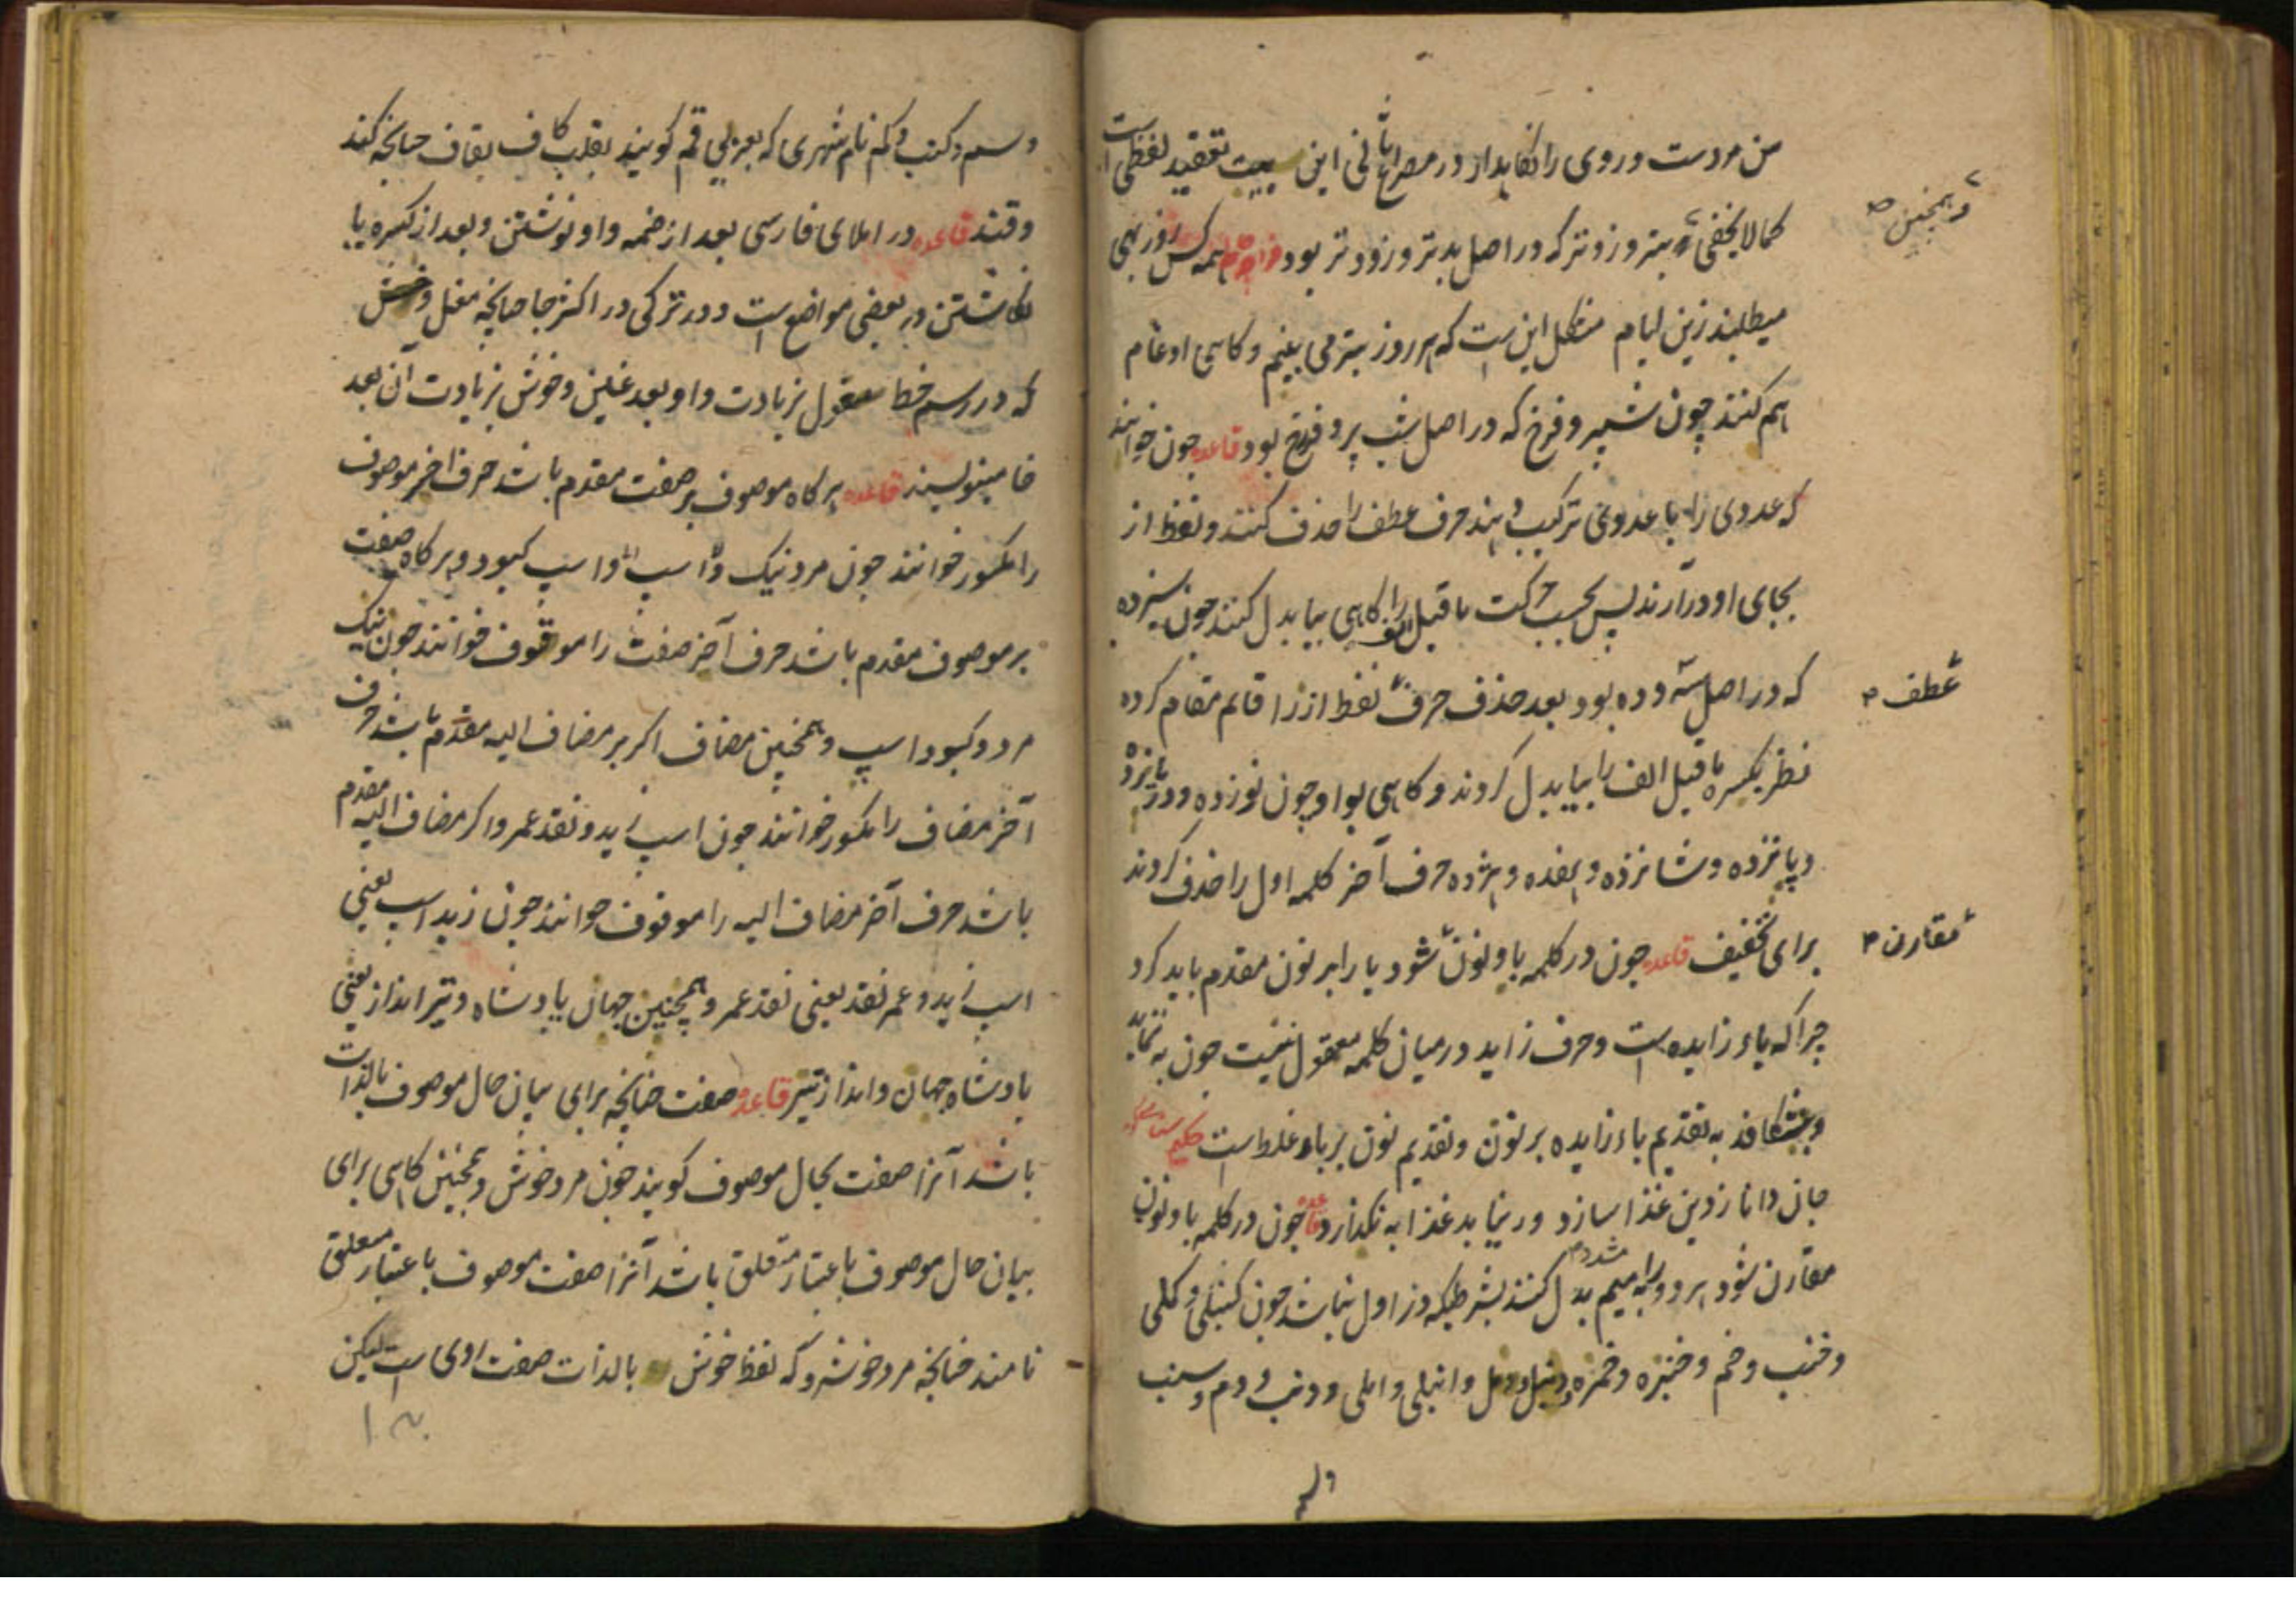 من مردست و روی را نگاهدار در مصراع ثانی این بیت تعقید لفظی است
کمالا یخفی بتر و زوتر که در اصل بدتر و زودتر بود همه کس روز بهی
میطلبد زین ایام مشکل این ست که هر روز بتر می بینم و کاهی ادغام
هم کنند چون شپر و فرخ که در اصل شب پر و فررخ بود قاعده چون خواهند
که عددی را با عددی ترکیب دهند حرف عطف را حذف کنند و لفظ از
بجای او درآرند پس بحسب حرکت ماقبل الف را کاهی بیا بدل کنند چون سیزده
که در اصل سه و ده بود بعد حذف حرف لفظ از را قایم مقام کرده
نظر بکسره ماقبل الف را بیا بدل کردند و کاهی بواو چون نوزده و دوازده
و پانزده و شانزده و هفده و هژده حرف آخر کلمه اول را حذف کردند
برای تخفیف قاعده چون در کلمه با و نون شود با را بر نون مقدم باید کرد
چرا که باء زایده است و حرف زاید در میان کلمه معقول نیست چون به نماید
و بشکافد به تقدیم باء زایده بر نون و تقدیم نون بر باء غلط است حکیم
جان دانا زدین غذا سازد ور نیابد غذا به نگذارد قاعده چون در کلمه با و نون
مقارن شود هر دو را به میم مشدد بدل کنند بشرطیکه در اول نباشد چون کنبلی و کملی
و خنب و خم و خنبره و خمره و دنبل و دمل و انبلی و املی و دنب و دم و سنب
وهمچنین
عطف
مقارن
و سم
و سم و کنب و کم نام شهری که بعربی قم کویند بقلب کاف بقاف چنانچه کند
و قند قاعده در املای فارسی بعد از ضمه واو نوشتن و بعد از کسره یا
نکاشتن در بعضی مواضع است و در ترکی در اکثر جا چنانچه مغل و
که در رسم خط مغول بزیادت واو بعد غین و خوش بزیادت آن بعد
خا مینویسند قاعده هر کاه موصوف بر صفت مقدم باشد حرف اخیر موصوف
را مکسور خوانند چون مرد نیک و اسپ کبود و هر کاه صفت
بر موصوف مقدم باشد حرف آخر صفت را موقوف خوانند چون نیک
مرد و کبود اسپ و همچنین مضاف اکر بر مضاف الیه مقدم باشد حرف
آخر مضاف را مکسور خوانند چون اسپ زید و نقد عمر و اکر مضاف الیه مقدم
باشد حرف آخر مضاف الیه را موقوف خوانند چون زید اسپ یعنی
اسپ زید و عمر نقد یعنی نقد عمر و همچنین جهان پادشاه و تیر انداز یعنی
پادشاه جهان و انداز تیر قاعده صفت چنانچه برای بیان حال موصوف بالذات
باشد آنرا صفت بحال موصوف کویند چون مرد خوش و همچنین کاهی برای
بیان حال موصوف باعتبار متعلق باشد آنرا صفت موصوف باعتبار متعلق
نامند چنانچه مرد خوشرو که لفظ خوش بالذات صفت اوی است لیکن